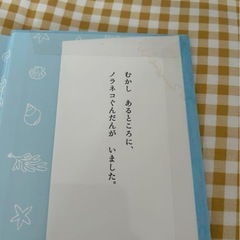 むかし　あるところに、
ノラネコぐんだんが　いました。